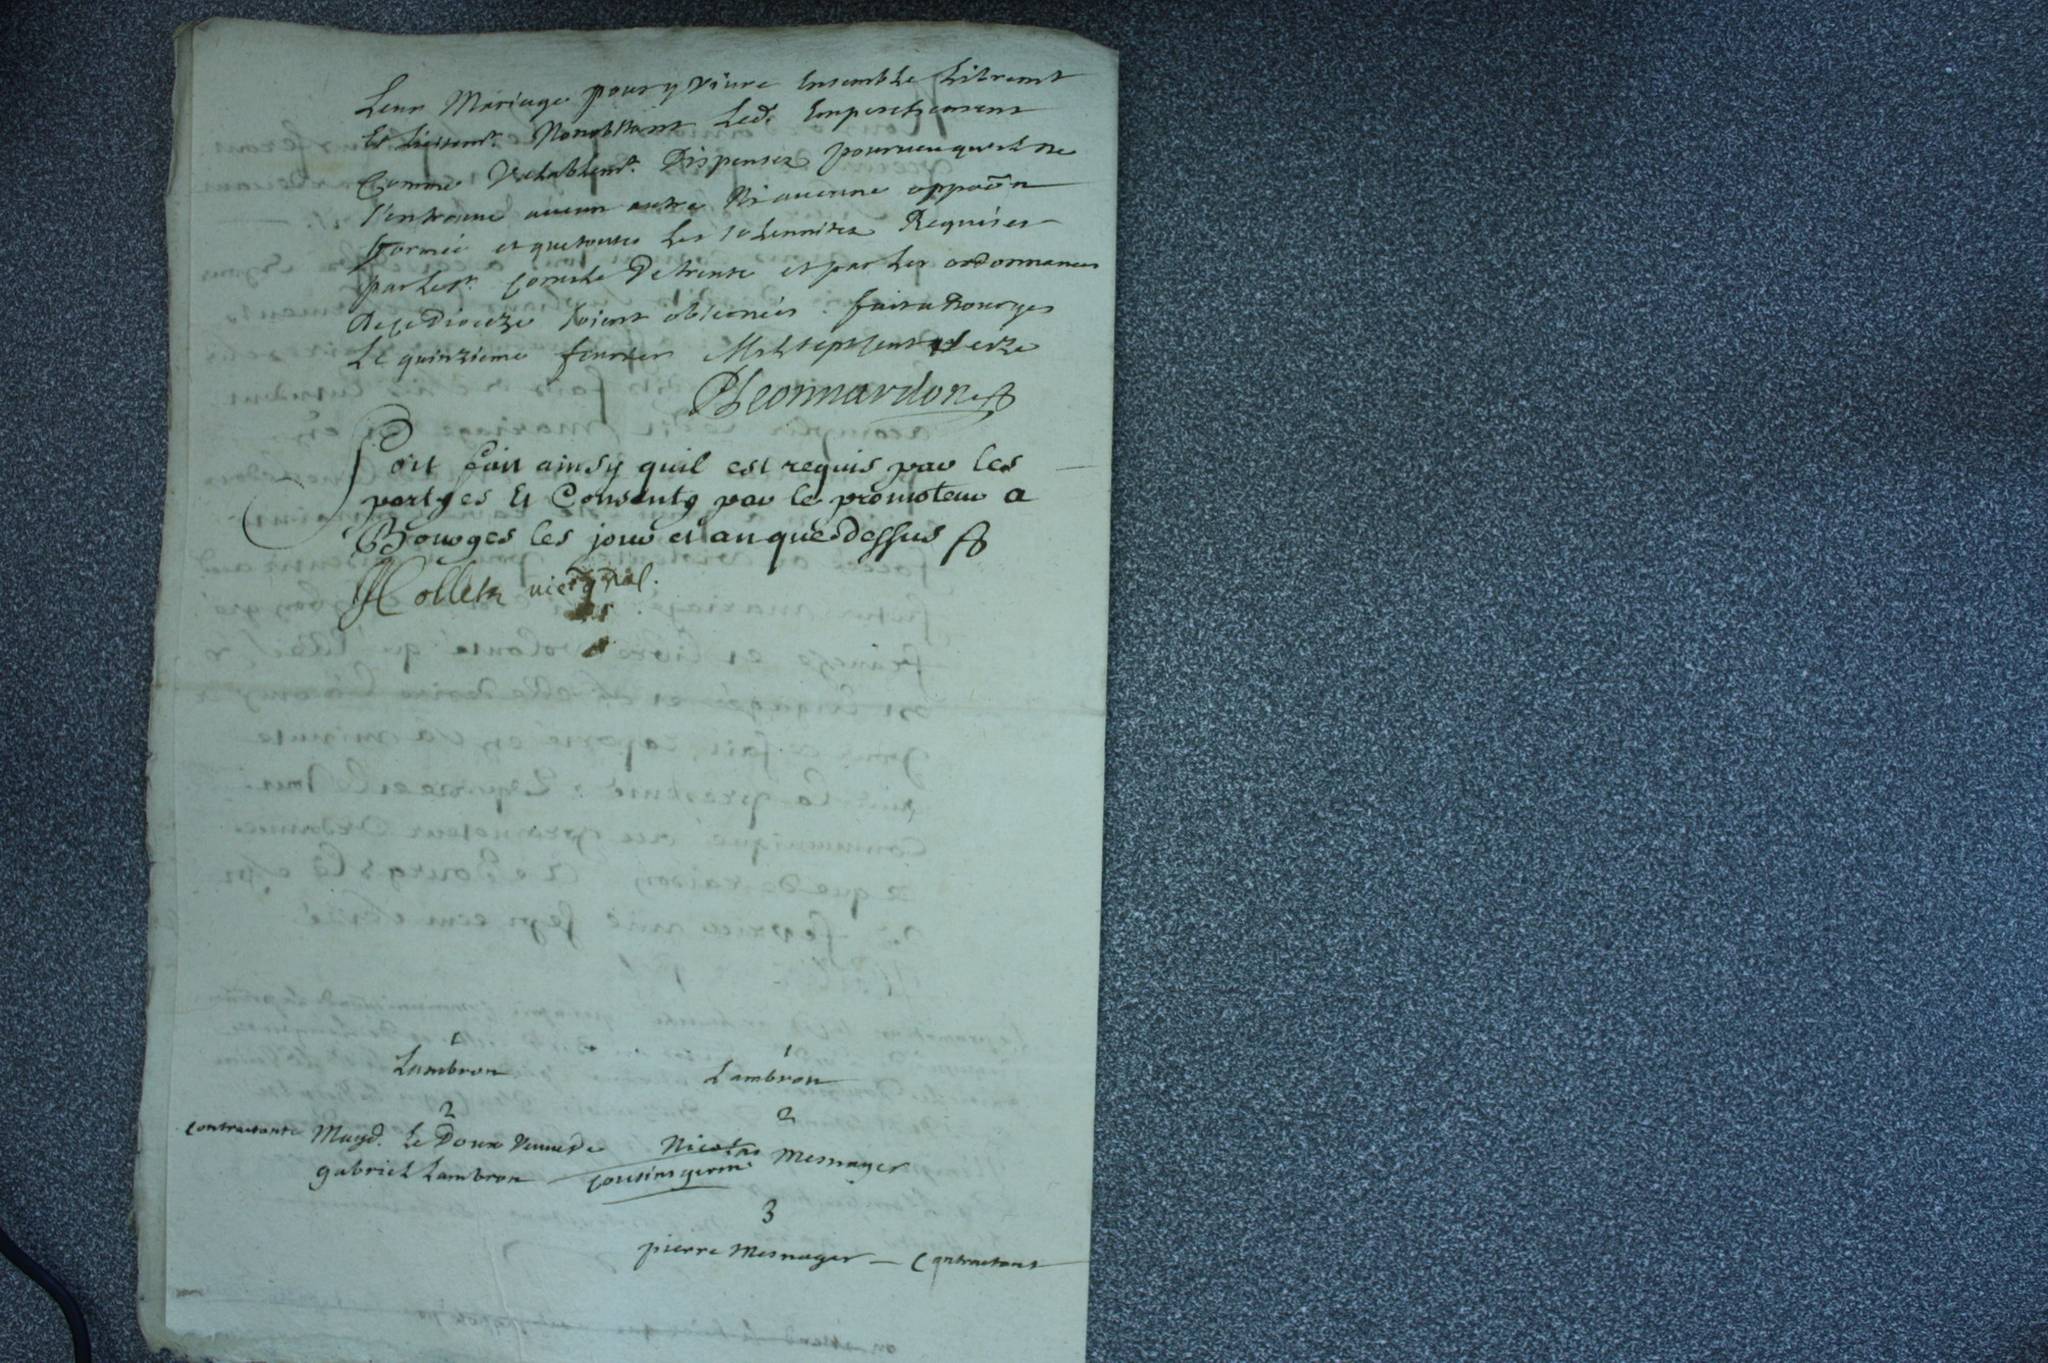 Leur Mariage pour y vivre Ensemble Libremt
Et Licitemt Nonobstant Led. Empeschement
Comme Valablemt Dispensez pourveu quil ne
s'entrouve aucun autre Ni aucune oppaõn
formée et que toutes Les solennitez Requises
par Le st. Concile De trente et par Les ordonnances
de ce dioceze soient observées. fait a Bourges
Le quinzieme fevrier Mil sept sent seize
Leonnardon
Soit fait ainsy quil est requis par les
partyes Et Consenty par le promoteur a
Bourges les jour et an que dessus
Collet vic. gñal.
1 1
Lambron Lambron
2 2
contractante Magd. Le Doux veuve de Nicolas Mesnager
gabriel Lambron — cousins germ.
3
pierre Mesnager — Contractant